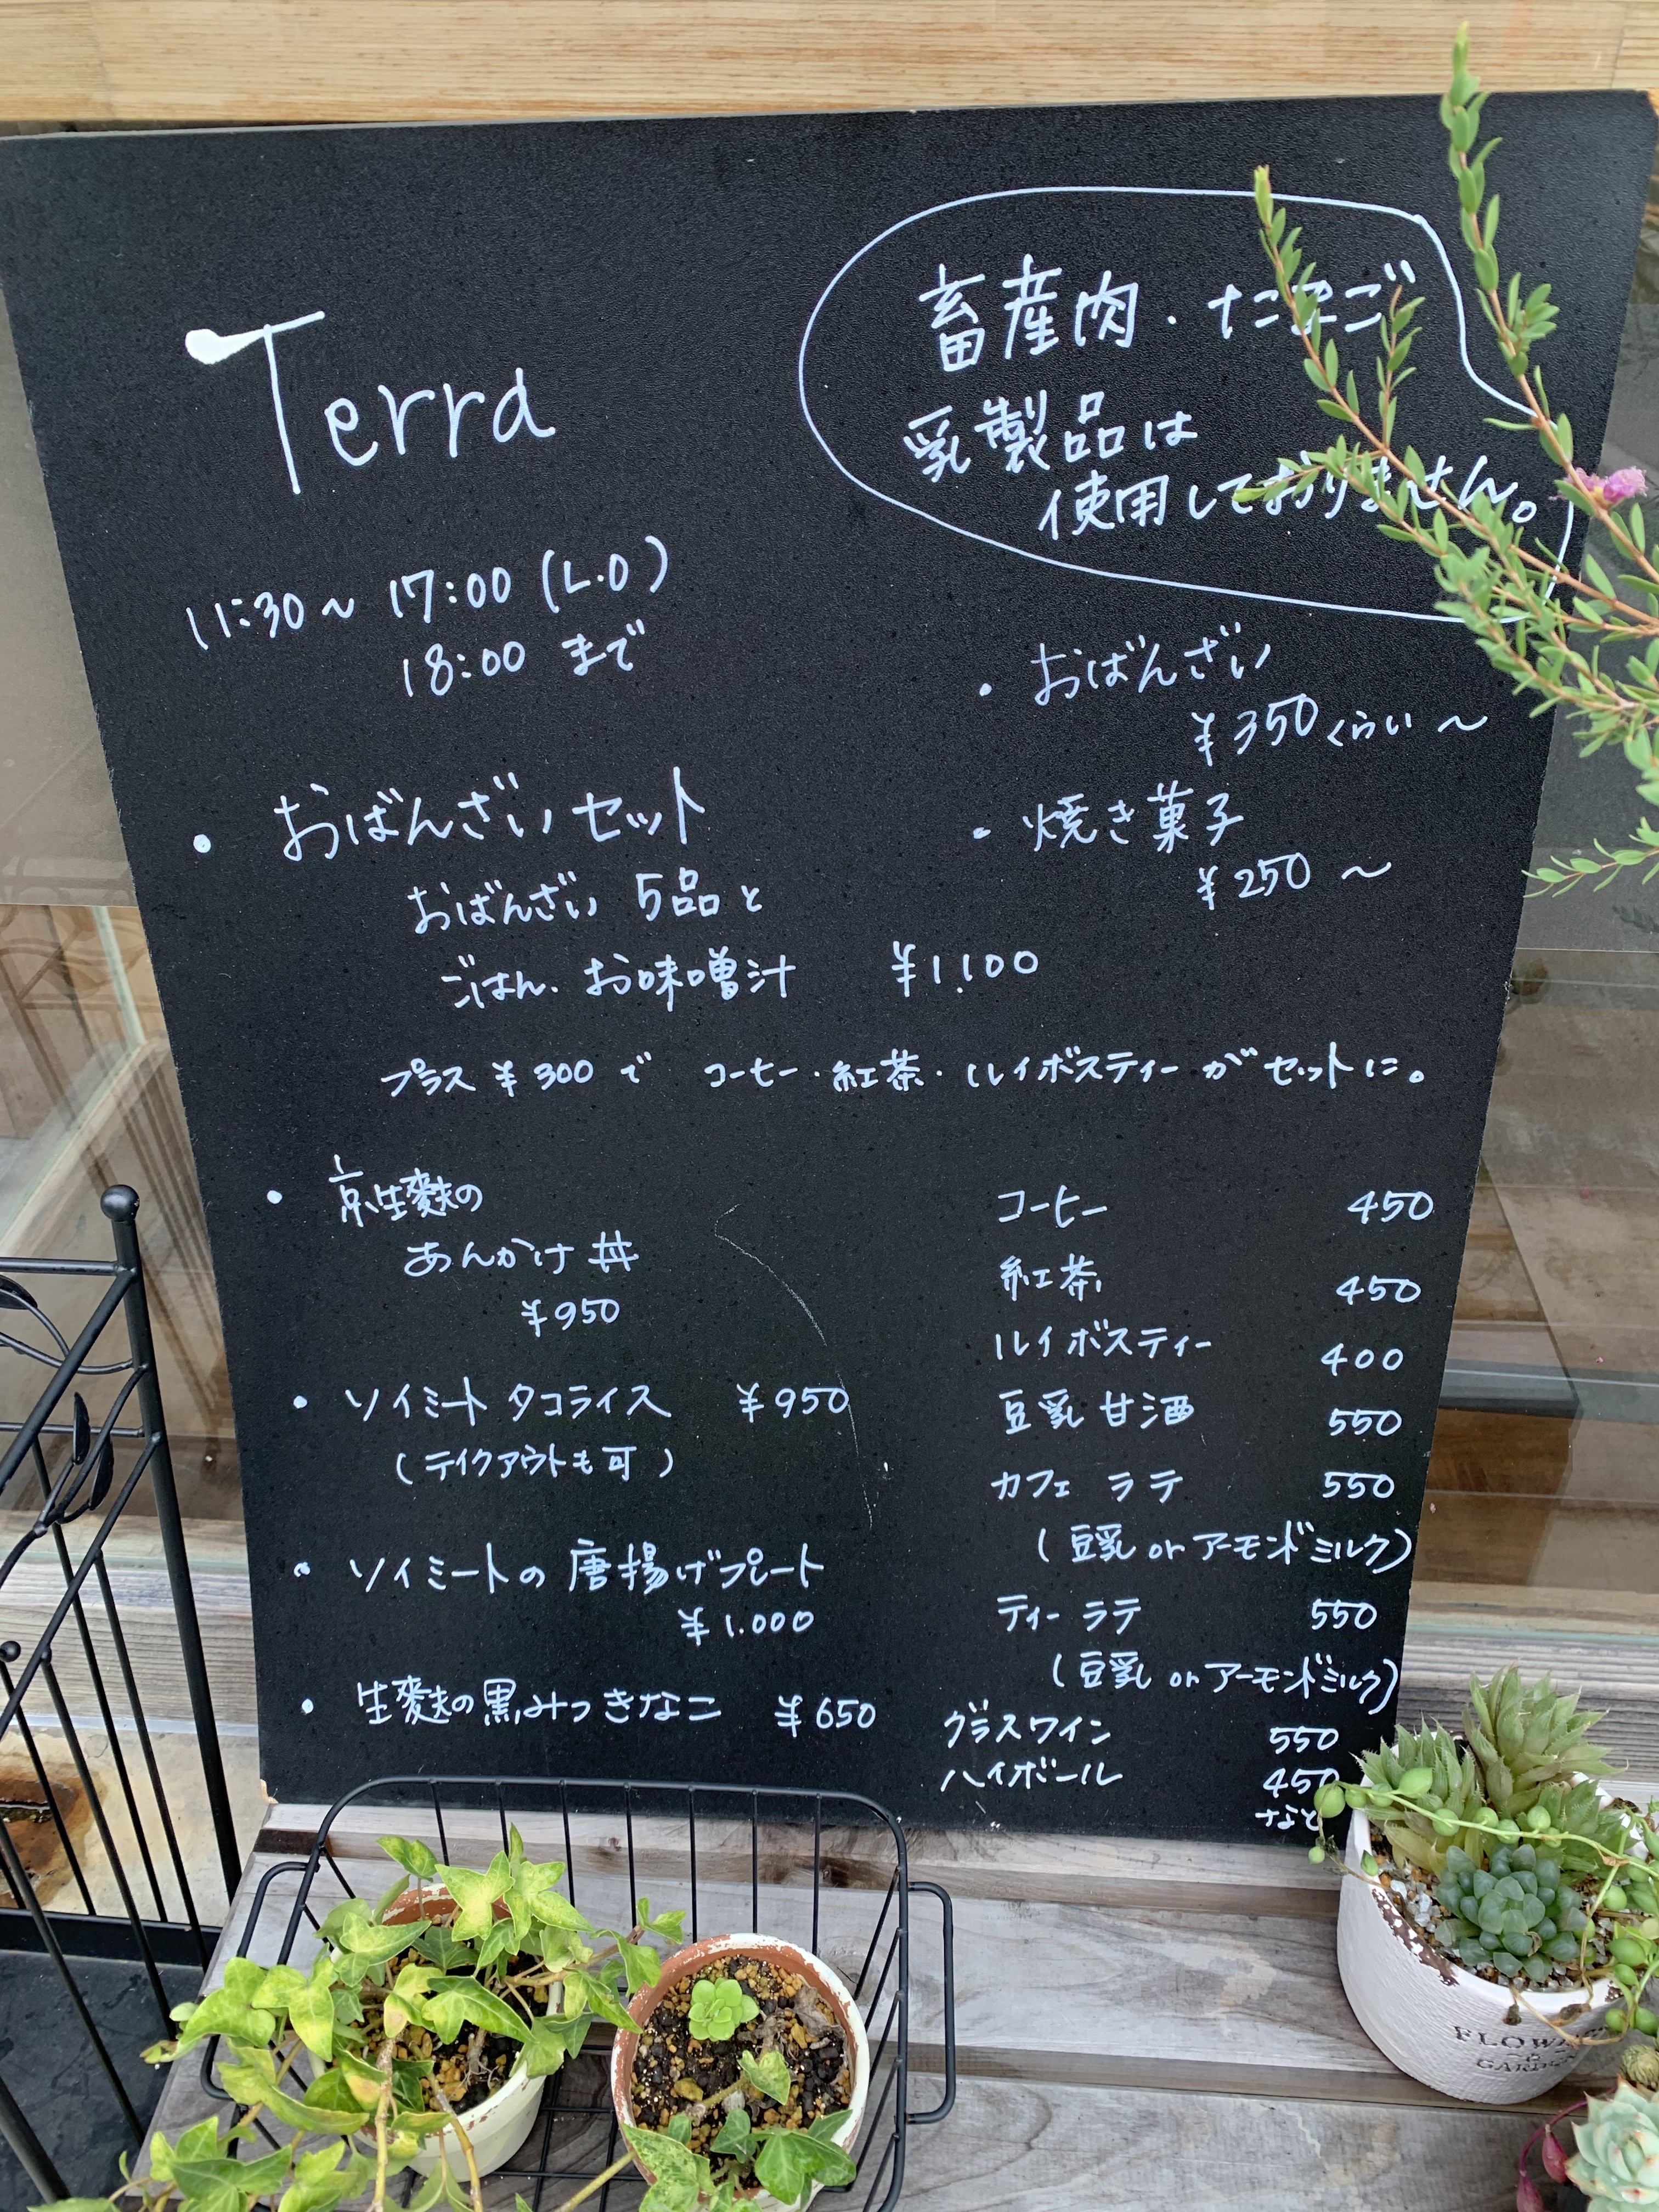 Terra
畜産肉・たまご
乳製品は
使用しておりません。
11:30～17:00(L.O)
18:00まで
・おばんざい
¥350くらい～
・焼き菓子
¥250～
・おばんざいセット
おばんざい 5品と
ごはん、お味噌汁 ¥1,100
プラス¥300で コーヒー・紅茶・ルイボスティーがセットに。
・京生麩の
あんかけ丼
¥950
・ソイミートタコライス ¥950
(テイクアウトも可)
・ソイミートの唐揚げプレート
¥1.000
・生麩の黒みつきなこ ¥650
コーヒー 450
紅茶 450
ルイボスティー 400
豆乳甘酒 550
カフェ ラテ 550
(豆乳 or アーモンドミルク)
ティー ラテ 550
(豆乳 or アーモンドミルク)
グラスワイン 550
ハイボール 450
など
FLOWER
&
GARDEN